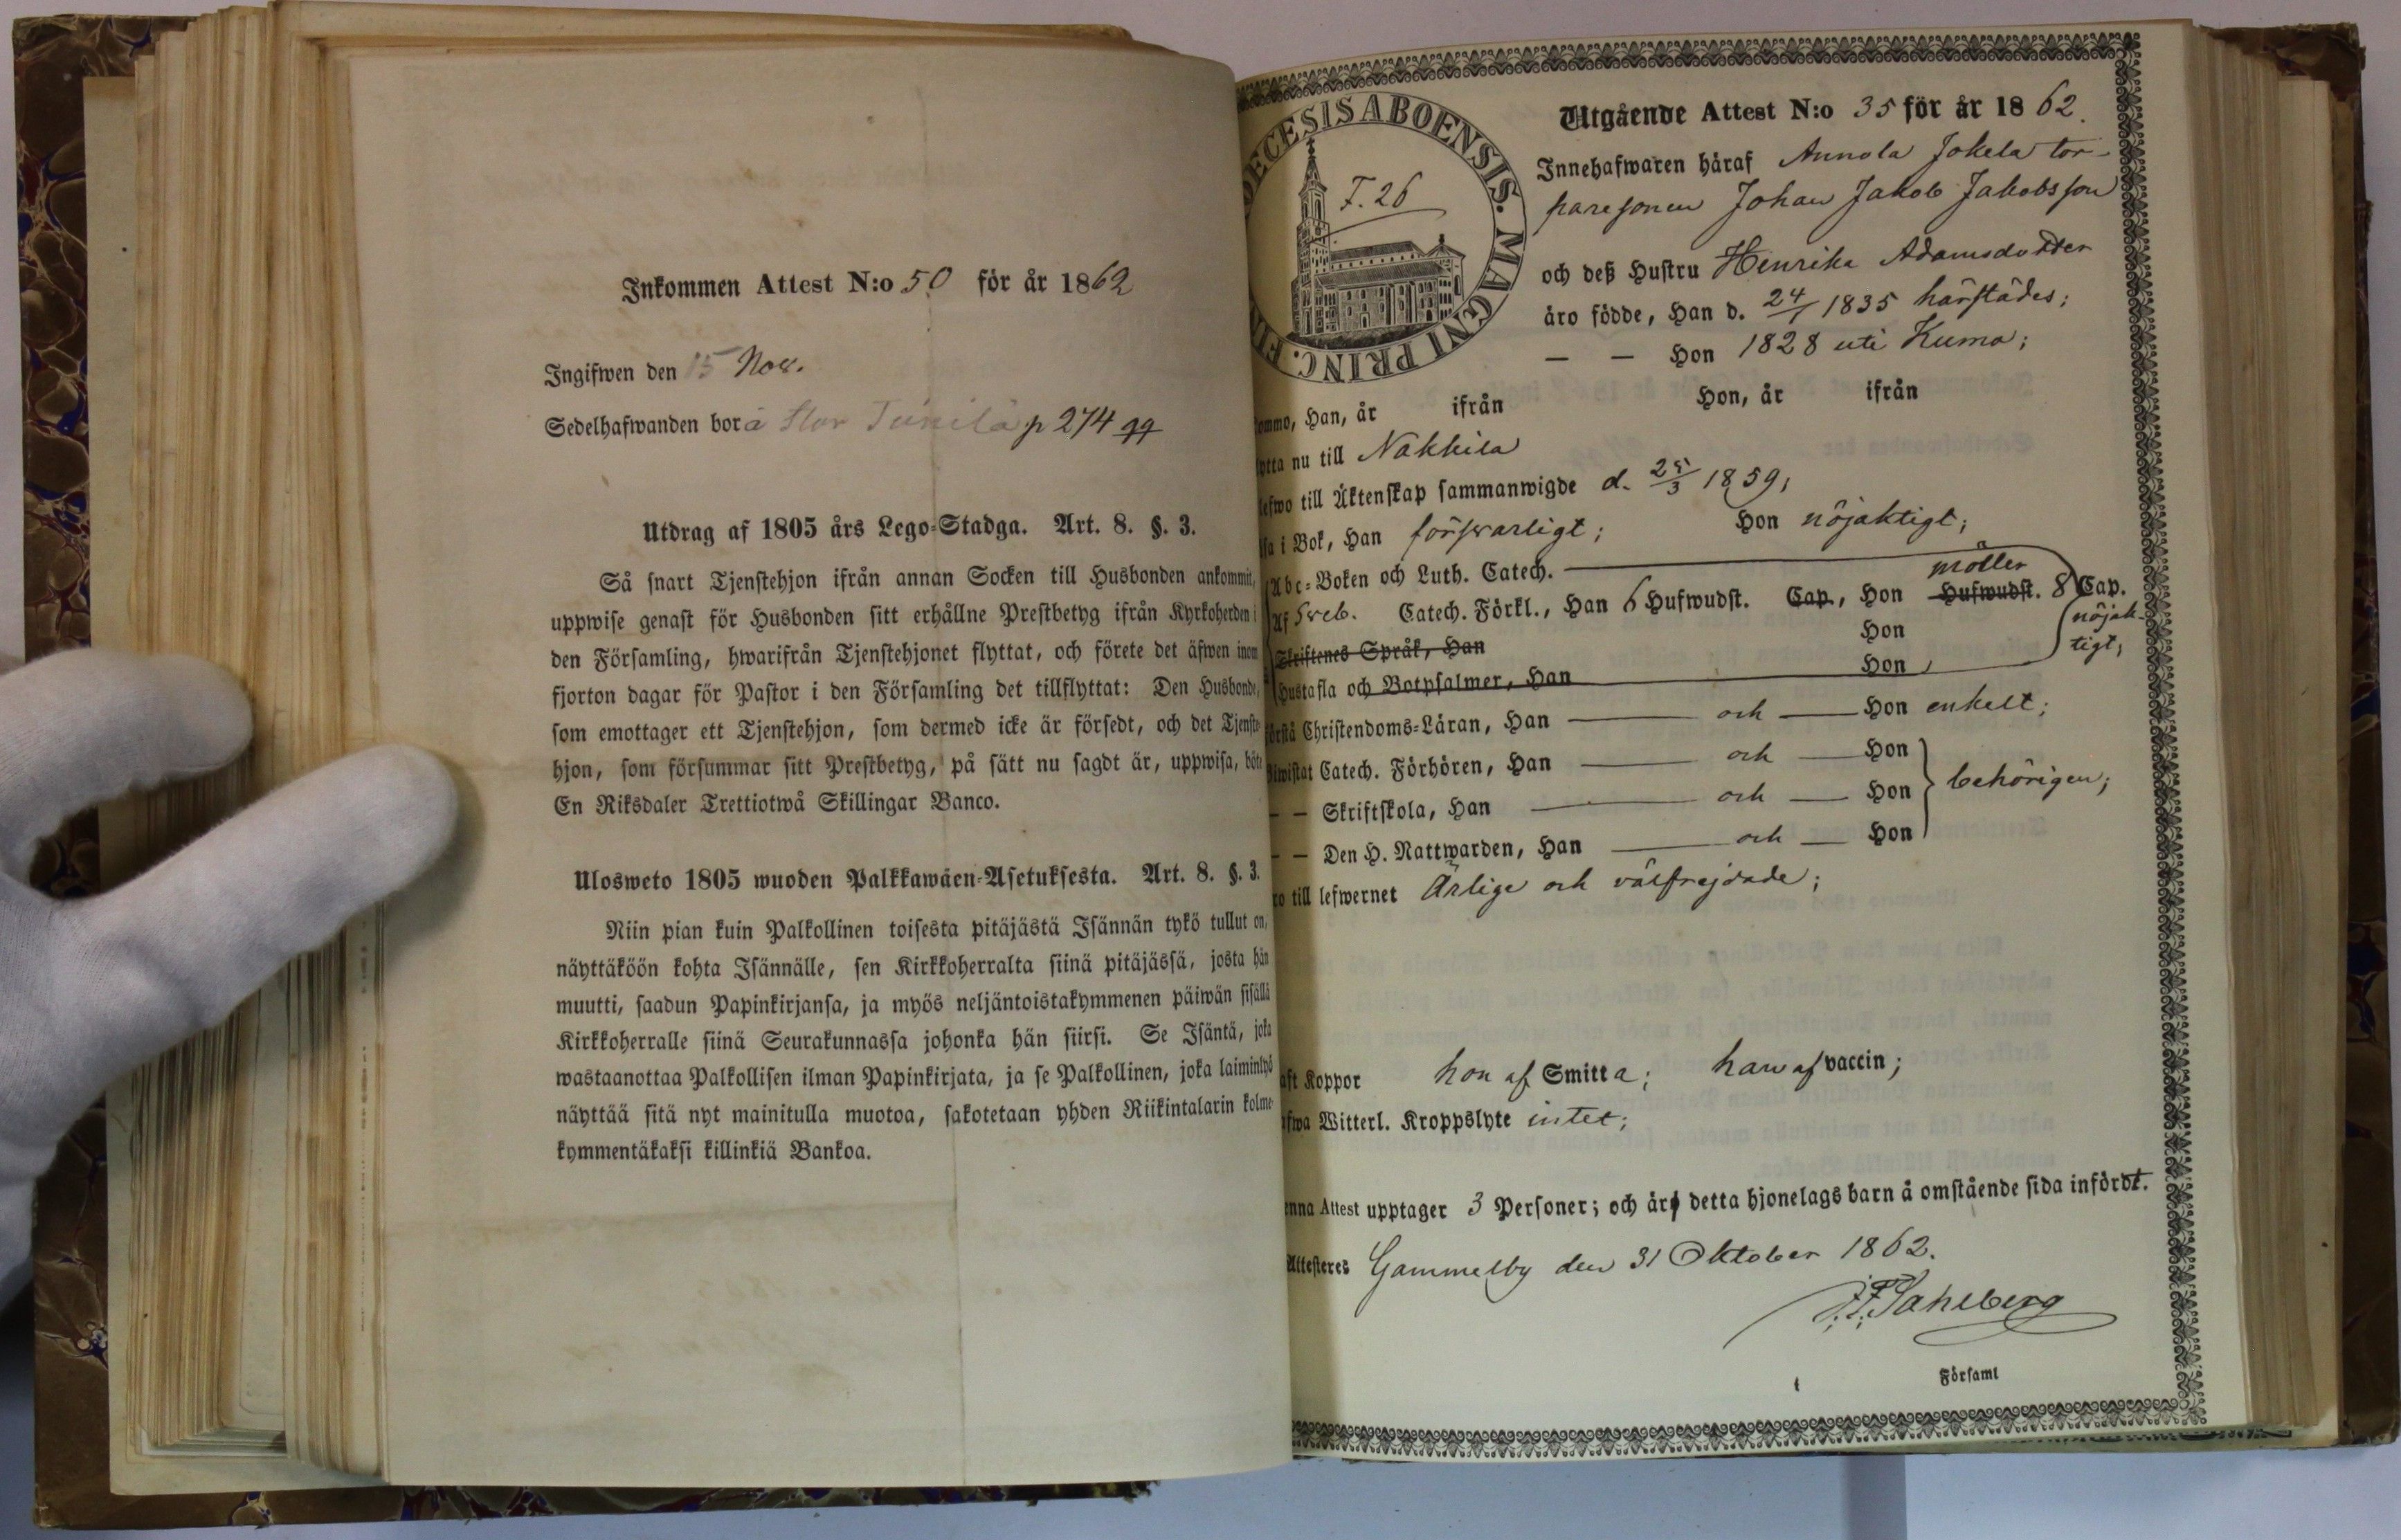 Inkommen Attest N:o 50 för år 1862
Ingifwen den 15 Nov.
Sedelhafwanden bor å Stor Tunila p 274
Utdrag af 1805 års Lego-Stadga. Art. 8. §. 3.
Så snart Tjenstehjon ifrån annan Socken till Husbonden ankommit,
uppwise genast för Husbonden sitt erhållne Prestbetyg ifrån Kyrkoherden i
den Församling, hwarifrån Tjenstehjonet flyttat, och förete det äfwen inom
fjorton dagar för Pastor i den Församling det tillflyttat: Den Husbonde,
som emottager ett Tjenstehjon, som dermed icke är försedt, och det Tjenste-
hjon, som försummar sitt Prestbetyg, på sätt nu sagdt är, uppwisa, böte
En Riksdaler Trettiotwå Skillingar Banco.
Ulosweto 1805 wuoden Palkkawäen-Asetuksesta. Art. 8. §. 3.
Niin pian kuin Palkollinen toisesta pitäjästä Isännän tykö tullut on,
näyttäköön kohta Isännälle, sen Kirkkoherralta siinä pitäjässä, josta hän
muutti, saadun Papinkirjansa, ja myös neljäntoistakymmenen päiwän sisällä
Kirkkoherralle siinä Seurakunnassa johonka hän siirsi. Se Isäntä, joka
wastaanottaa Palkollisen ilman Papinkirjata, ja se Palkollinen, joka laiminlyö
näyttää sitä nyt mainitulla muotoa, sakotetaan yhden Riikintalarin kolme-
kymmentäkaksi killinkiä Bankoa.
ECESIS ABOENSIS. MAGNI PRINC. FI
F. 26
Utgående Attest N:o 35 för år 1862.
Innehafwaren häraf Annola Jokela tor-
paresonen Johan Jakob Jakobsson
och deß Hustru Henrika Adamsdotter
äro födde, Han d. 24/1 1835 härstädes;
— — Hon 1828 uti Kumo;
ommo, Han, år ifrån Hon, år ifrån
ytta nu till Nakkila
lefwo till Äktenskap sammanwigde d. 25/3 1859;
sa i Bok, Han förswarligt; Hon nöjaktigt;
Abc-Boken och Luth. Catech.
Af Sveb. Catech. Förkl., Han 6 Hufwudst. Cap., Hon Hufwudst. 8 Cap. nöjak-
tigt;
Skriftenes Språk, Han Hon
Hustafla och Botpsalmer, Han Hon
örstå Christendoms-Läran, Han — och — Hon enkelt;
iwistat Catech. Förhören, Han — och — Hon
— — Skriftskola, Han — och — Hon behörigen;
— — Den H. Nattwarden, Han — och — Hon
ro till lefwernet Ärlige och välfrejdade;
aft Koppor hon af Smitta; han af vaccin;
fwa Witterl. Kroppslyte intet;
enna Attest upptager 3 Personer; och är detta hjonelags barn å omstående sida infördt.
Attesteres Gammelby den 31 Oktober 1862.
J. F. Sahlberg
Församl